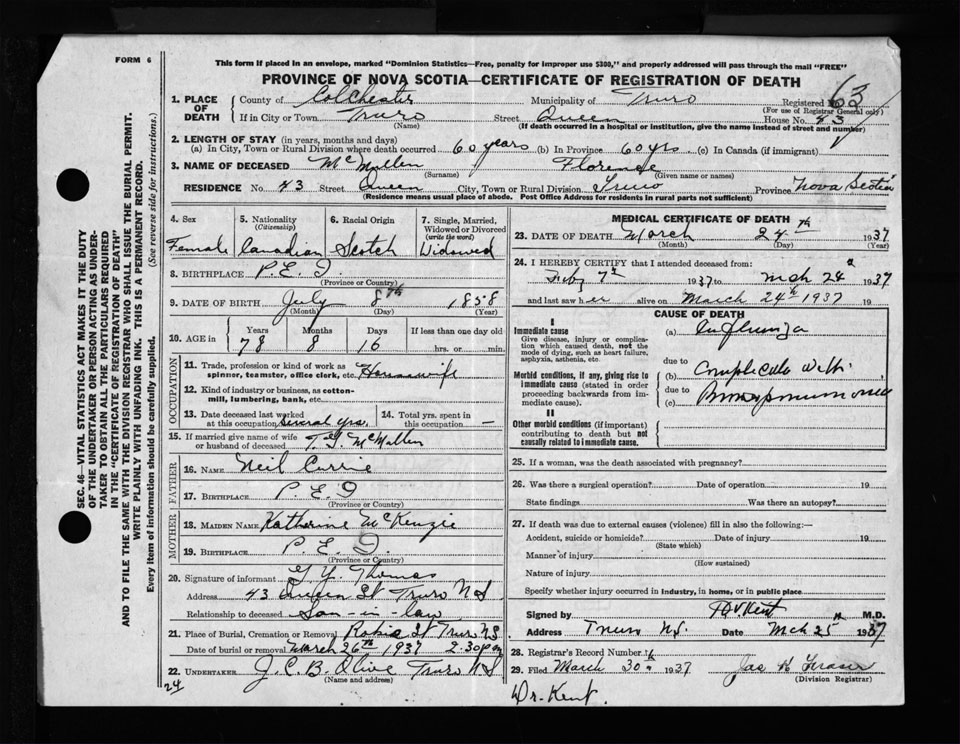 FORM 6
This form if placed in an envelope, marked "Dominion Statistics—Free, penalty for improper use $300," and properly addressed will pass through the mail "FREE"
PROVINCE OF NOVA SCOTIA—CERTIFICATE OF REGISTRATION OF DEATH
1. PLACE OF DEATH
County of Colchester Municipality of Truro Registered No. 63
(For use of Registrar General only)
If in City or Town Truro Street Queen House No. 43
(Name) (If death occurred in a hospital or institution, give the name instead of street and number)
2. LENGTH OF STAY (in years, months and days)
(a) In City, Town or Rural Division where death occurred 60 years (b) In Province 60 yrs. (c) In Canada (if immigrant)
3. NAME OF DECEASED McMullen Florence
(Surname) (Given name or names)
RESIDENCE No. 43 Street Queen City, Town or Rural Division Truro Province Nova Scotia
(Residence means usual place of abode. Post Office Address for residents in rural parts not sufficient)
4. Sex 5. Nationality (Citizenship) 6. Racial Origin 7. Single, Married, Widowed or Divorced (write the word)
Female Canadian Scotch Widowed
8. BIRTHPLACE P.E.I.
(Province or Country)
9. DATE OF BIRTH July 8th 1858
(Month) (Day) (Year)
10. AGE in Years Months Days If less than one day old
78 8 16 hrs. or min.
OCCUPATION
11. Trade, profession or kind of work as spinner, teamster, office clerk, etc. Housewife
12. Kind of industry or business, as cotton-mill, lumbering, bank, etc.
13. Date deceased last worked at this occupation several yrs. 14. Total yrs. spent in this occupation —
15. If married give name of wife or husband of deceased T. G. McMullen
FATHER
16. NAME Neil Currie
17. BIRTHPLACE P.E.I
(Province or Country)
MOTHER
18. MAIDEN NAME Katherine McKenzie
19. BIRTHPLACE P.E.I.
(Province or Country)
20. Signature of informant G. Y. Thomas
Address 43 Queen St Truro NS
Relationship to deceased Son-in-law
21. Place of Burial, Cremation or Removal Robie St Truro NS
Date of burial or removal March 26th 1937 2:30 pm
22. UNDERTAKER J.C.B. Olive Truro NS
(Name and address)
24
MEDICAL CERTIFICATE OF DEATH
23. DATE OF DEATH March 24th 1937
(Month) (Day) (Year)
24. I HEREBY CERTIFY that I attended deceased from:
Feby 7th 1937 to Mch 24th 1937
and last saw her alive on March 24th 1937 19
CAUSE OF DEATH
I
Immediate cause
Give disease, injury or complication which caused death, not the mode of dying, such as heart failure, asphyxia, asthenia, etc.
(a) Influenza
due to
Morbid conditions, if any, giving rise to immediate cause (stated in order proceeding backwards from immediate cause).
(b) Complicated with
due to
(c) Bronchopneumonia
II
Other morbid conditions (if important) contributing to death but not causally related to immediate cause.
25. If a woman, was the death associated with pregnancy?
26. Was there a surgical operation? Date of operation 19
State findings Was there an autopsy?
27. If death was due to external causes (violence) fill in also the following:—
Accident, suicide or homicide? Date of injury 19
(State which)
Manner of injury
(How sustained)
Nature of injury
Specify whether injury occurred in industry, in home, or in public place
Signed by Kent M.D.
Address Truro NS. Date Mch 25th 1937
28. Registrar's Record Number
29. Filed March 30th 1937 Jas H Fraser
(Division Registrar)
Dr. Kent.
SEC. 46—VITAL STATISTICS ACT MAKES IT THE DUTY
OF THE UNDERTAKER OR PERSON ACTING AS UNDER-
TAKER TO OBTAIN ALL THE PARTICULARS REQUIRED
IN THE "CERTIFICATE OF REGISTRATION OF DEATH"
AND TO FILE THE SAME WITH THE DIVISION REGISTRAR WHO SHALL ISSUE THE BURIAL PERMIT.
WRITE PLAINLY WITH UNFADING INK. THIS IS A PERMANENT RECORD.
Every item of information should be carefully supplied. (See reverse side for instructions.)